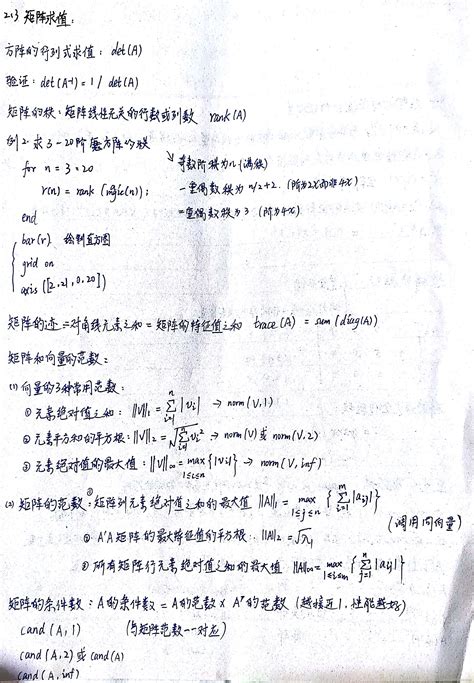 2.3 矩阵求值:
方阵的行列式求值: det(A)
验证: det(A⁻¹) = 1 / det(A)
矩阵的秩: 矩阵线性无关的行数或列数 rank(A)
例2: 求3-20阶魔方阵的秩
for n = 3:20
奇数阶秩为n (满秩)
r(n) = rank (magic(n));
一重偶数秩为 n/2+2. (阶为2X而非4X)
end
二重偶数秩为3 (阶为4X)
bar(r) 绘制直方图
grid on
axis ([2,21,0,20])
矩阵的迹 = 对角线元素之和 = 矩阵的特征值之和 trace(A) = sum (diag(A))
矩阵和向量的范数:
(1) 向量的3种常用范数:
① 元素绝对值之和: ||V||₁ = Σⁿᵢ₌₁ |vᵢ| → norm(V,1)
② 元素平方和的平方根: ||V||₂ = √Σⁿᵢ₌₁ vᵢ² → norm(V) 或 norm(V,2)
③ 元素绝对值的最大值: ||V||∞ = max 1≤i≤n {|vi|} → norm(V,inf)
(2) 矩阵的范数: ① 矩阵列元素绝对值之和的最大值 ||A||₁ = max 1≤j≤n { Σᵐᵢ₌₁ |aij| }
(调用同向量)
② A'A矩阵的最大特征值的平方根. ||A||₂ = √λ₁
③ 所有矩阵行元素绝对值之和的最大值 ||A||∞ = max 1≤i≤m { Σⁿⱼ₌₁ |aij| }
矩阵的条件数: A的条件数 = A的范数 × A⁻¹的范数 (越接近1, 性能越好)
cond (A,1) (与矩阵范数一一对应)
cond (A,2) 或 cond(A)
cond (A, inf)